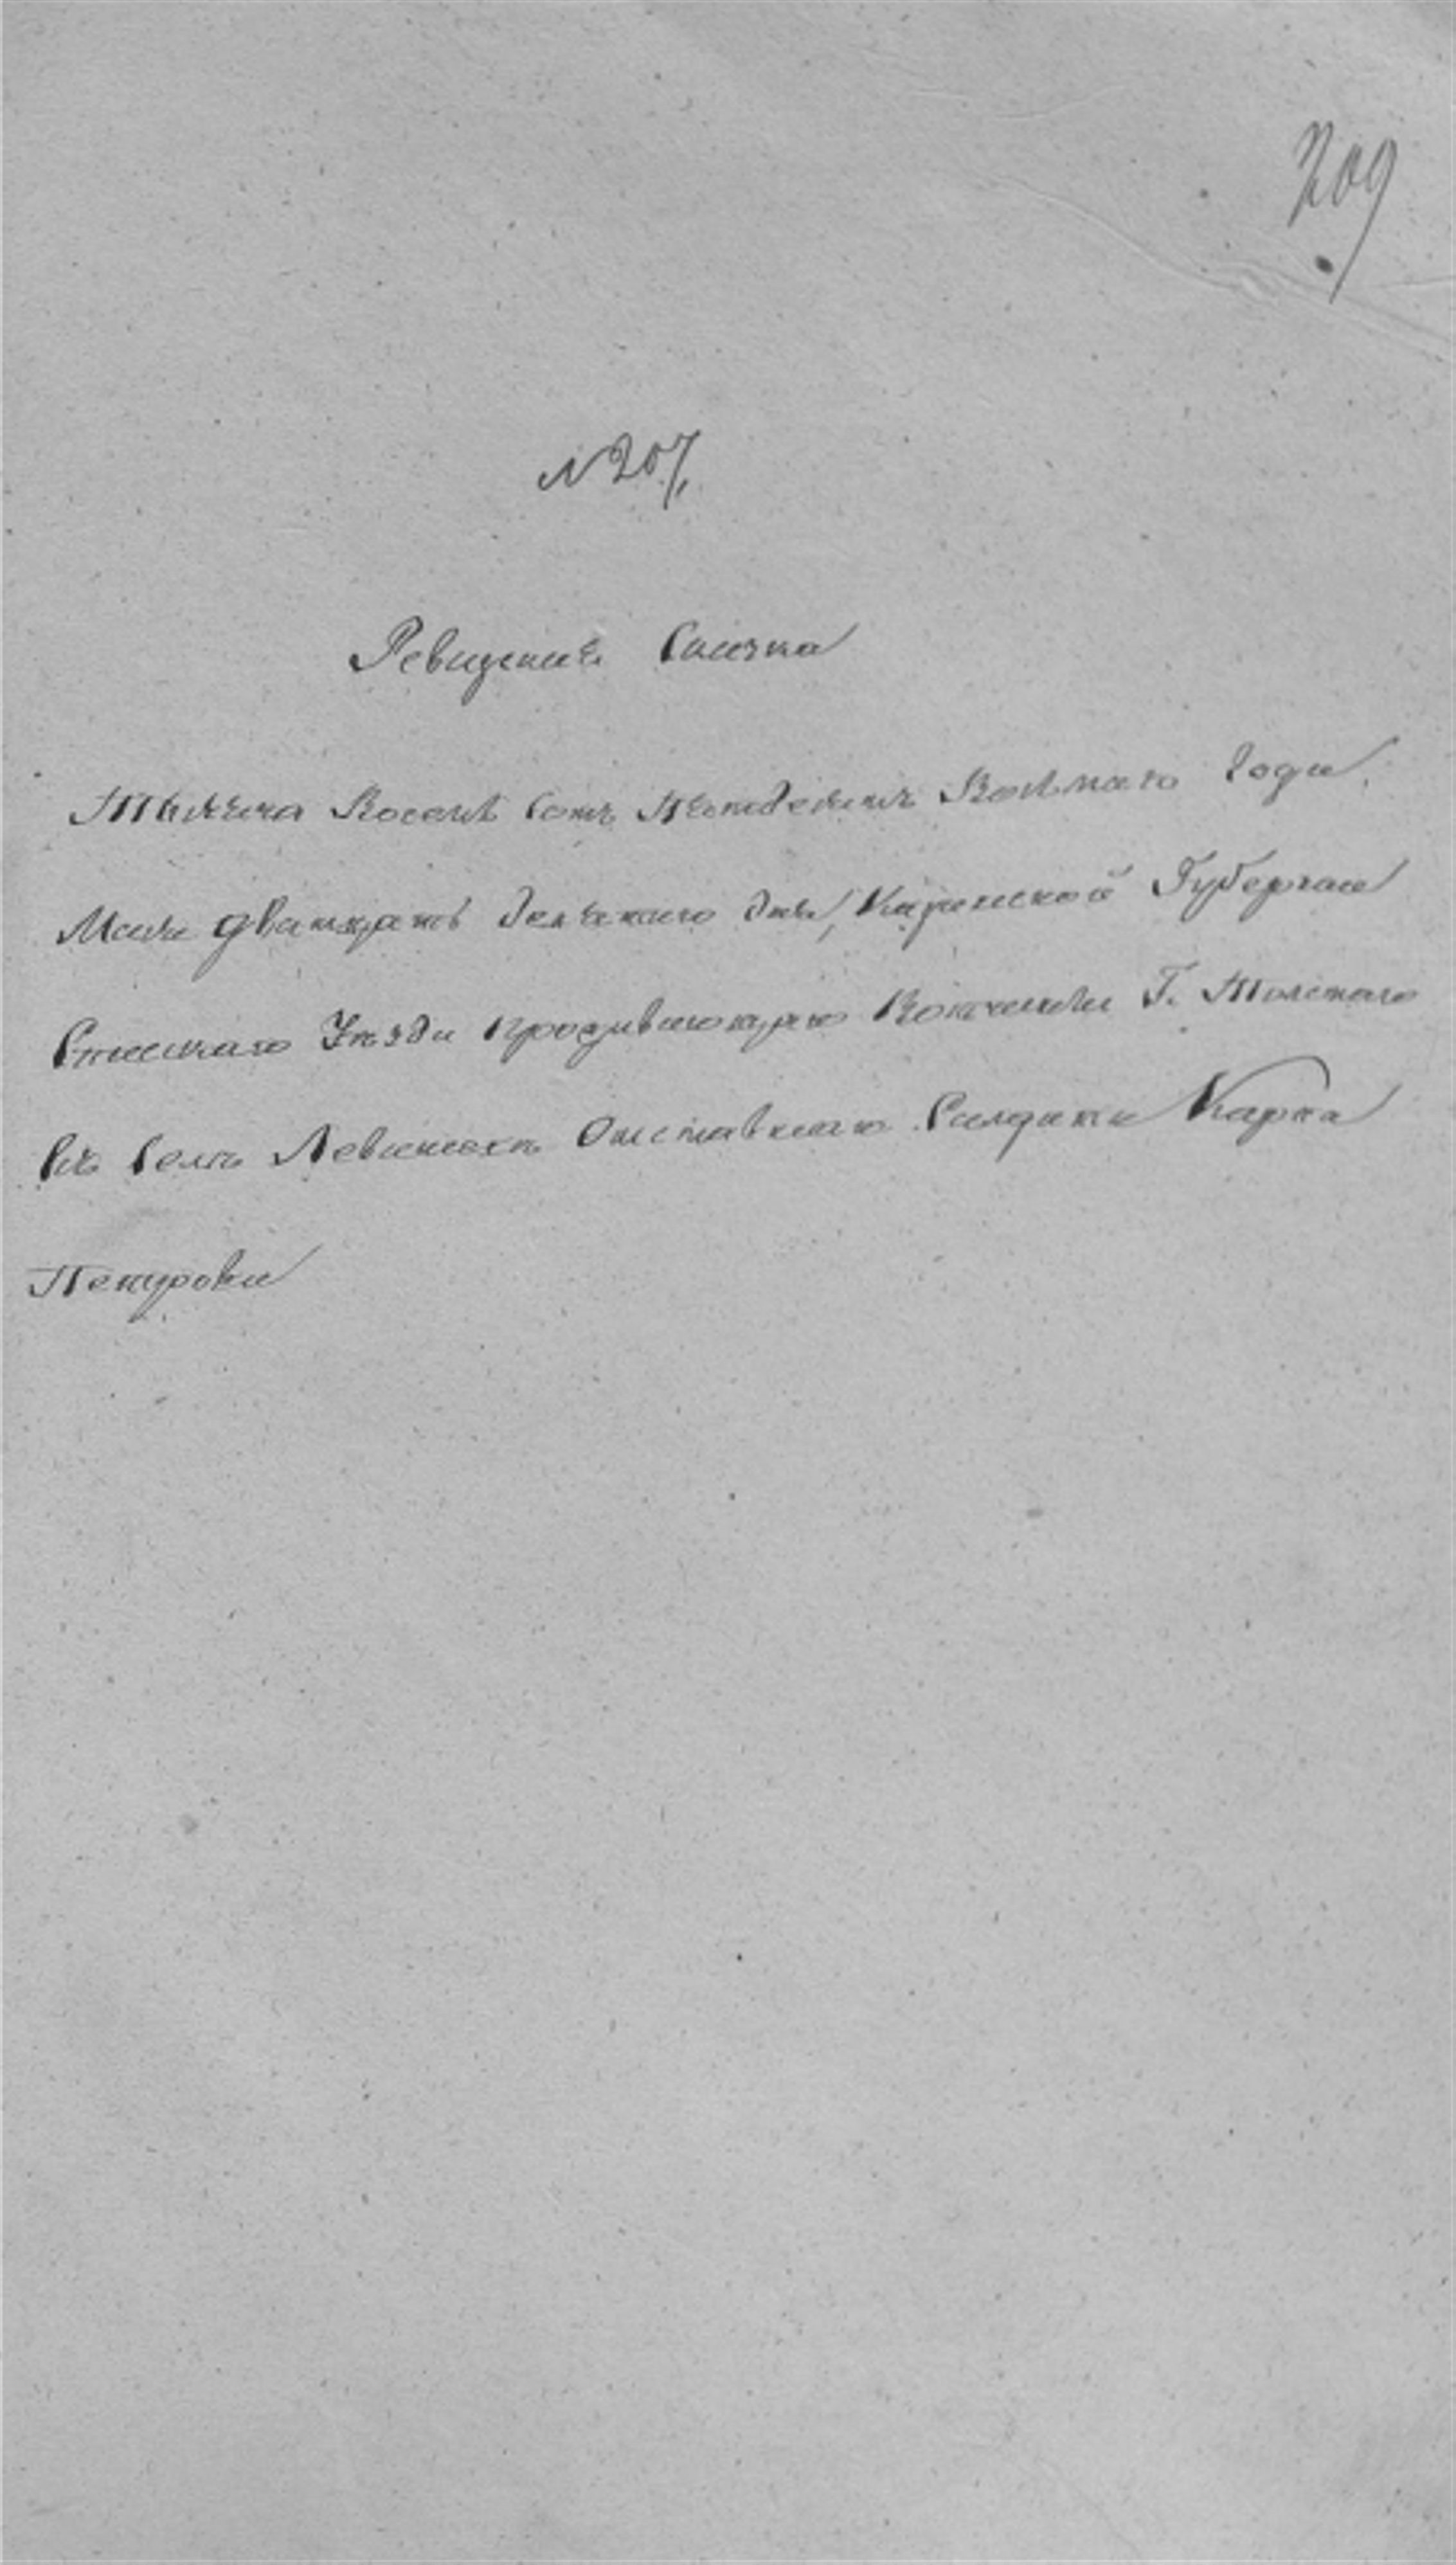 209
№ 207,
Ревизская Сказка
Тысяча Восемь Сотъ Пятдесятъ Восмаго Года
Мая дватцать девятаго дня, Казанской Губернии
Спасскаго Уезда проживающаго Вотчины Г. Толстаго
въ Селе Левашахъ Отставнаго Салдата Карпа
Петрова